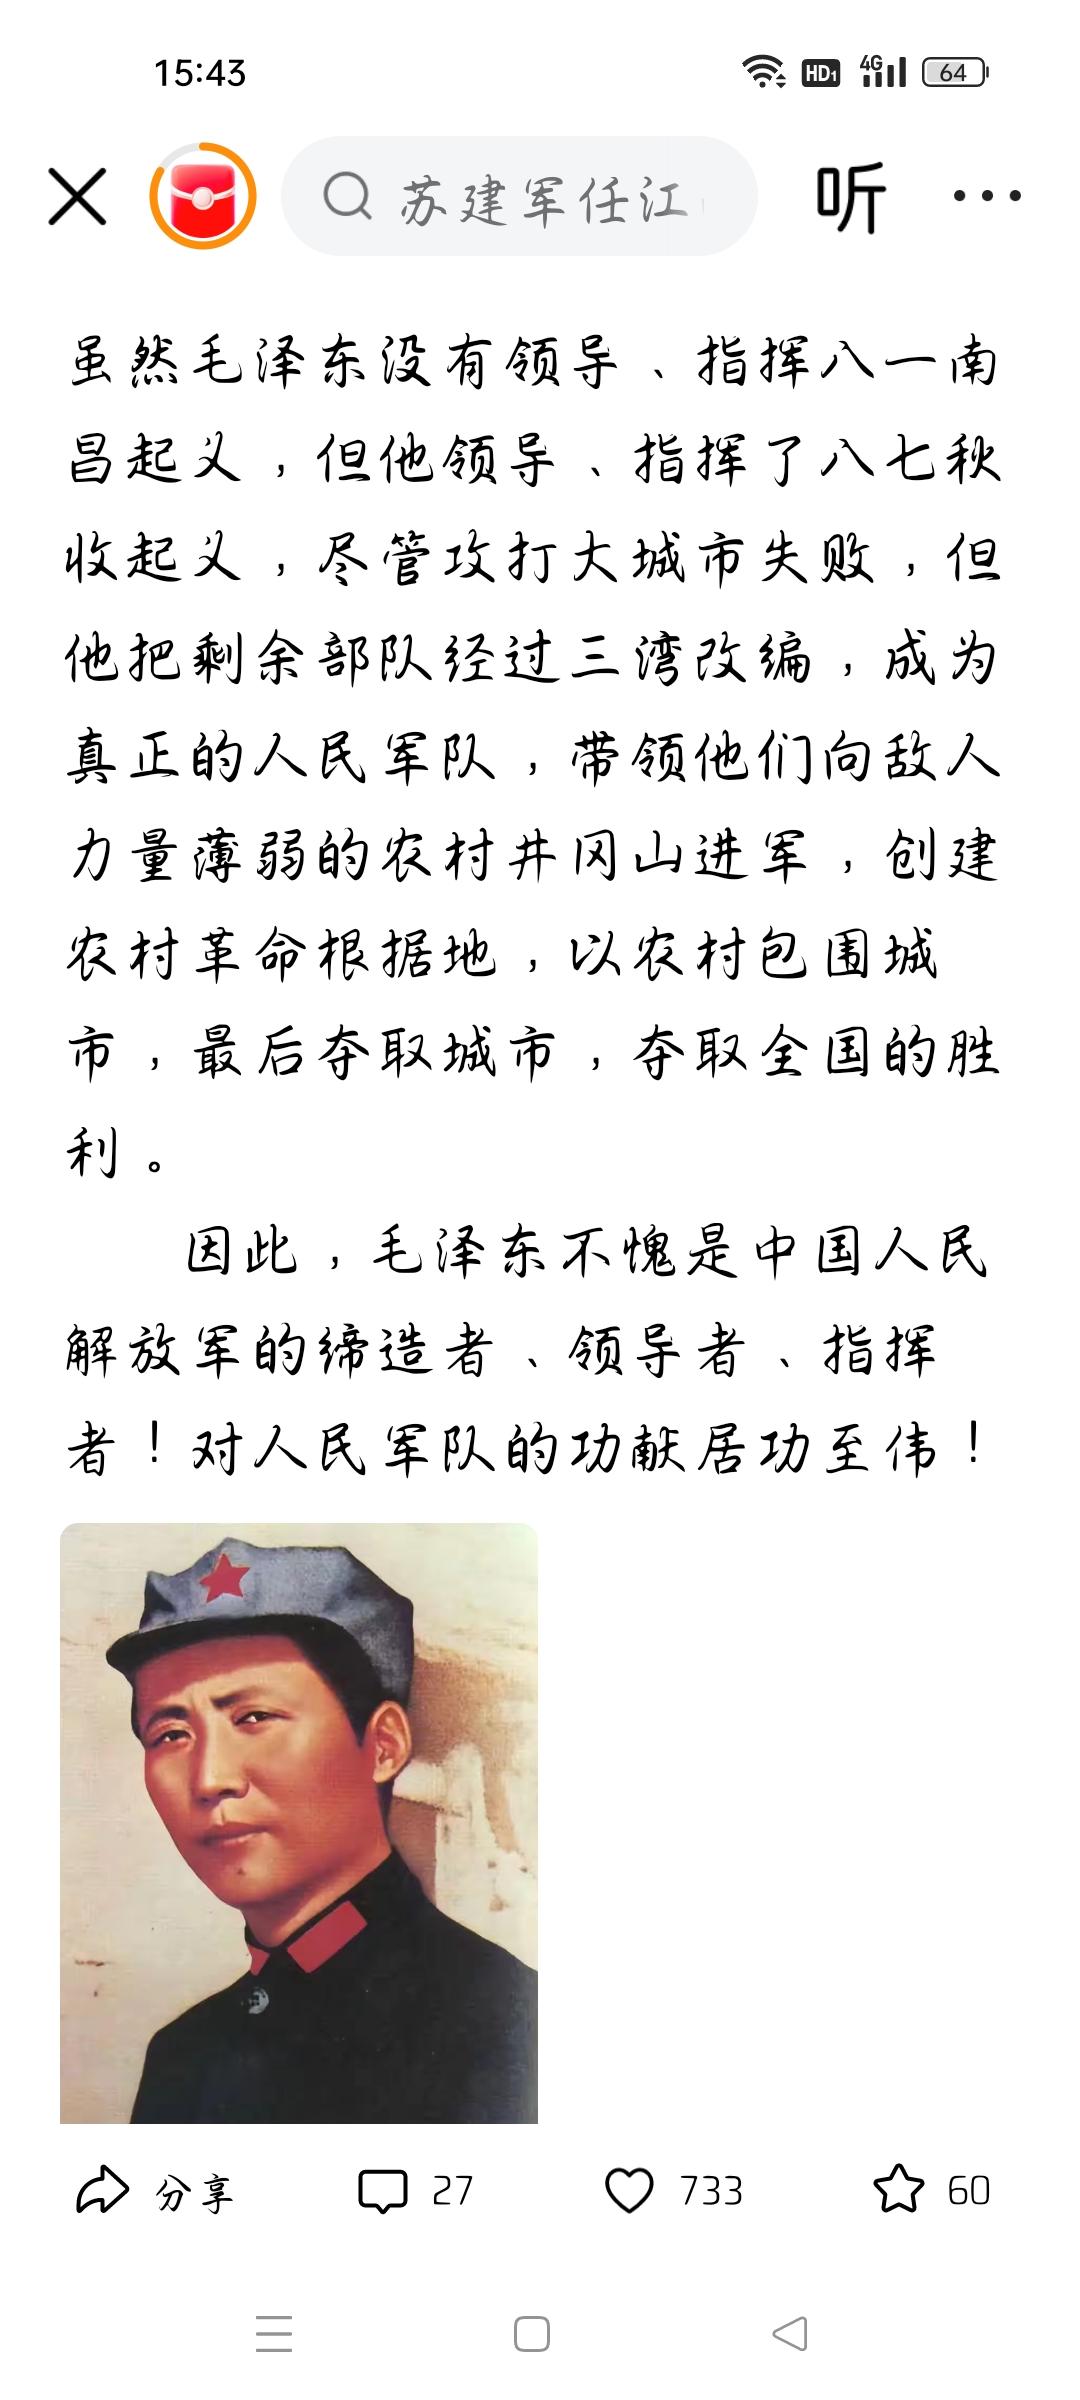 15:43
HD1
4G
64
苏建军任江
听
虽然毛泽东没有领导、指挥八一南
昌起义，但他领导、指挥了八七秋
收起义，尽管攻打大城市失败，但
他把剩余部队经过三湾改编，成为
真正的人民军队，带领他们向敌人
力量薄弱的农村井冈山进军，创建
农村革命根据地，以农村包围城
市，最后夺取城市，夺取全国的胜
利。
因此，毛泽东不愧是中国人民
解放军的缔造者、领导者、指挥
者！对人民军队的功献居功至伟！
分享
27
733
60